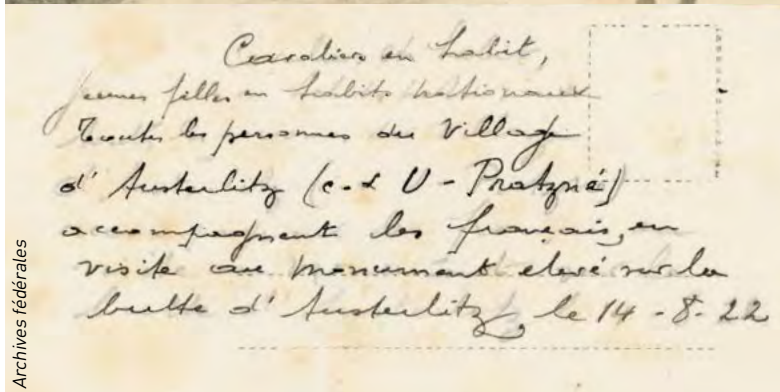 Cavaliers en habit,
jeunes filles en habits nationaux
Toutes les personnes du Village
d'Austerlitz (c-à U - Pratzné)
accompagnent les français, en
visite au monument elevé sur la
butte d'Austerlitz, le 14-8-22
Archives fédérales